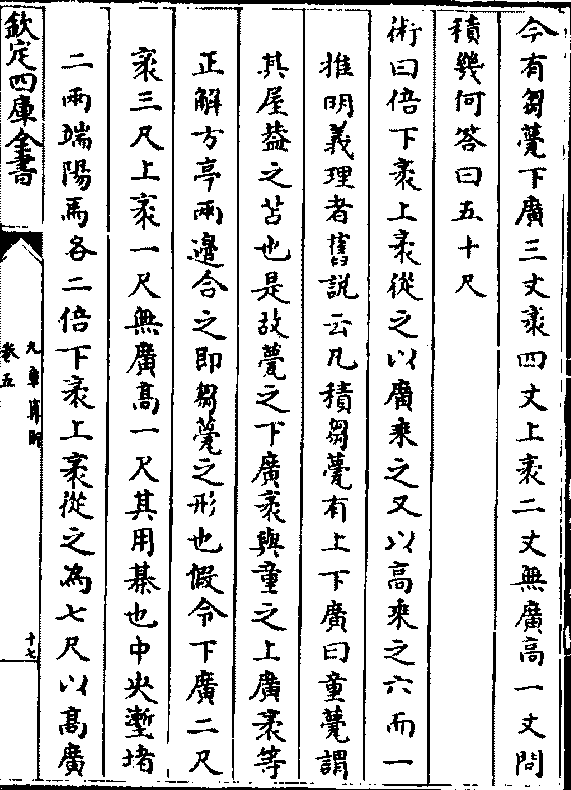 今有芻甍下廣三丈袤四丈上袤二丈無廣高一丈問
積幾何答曰五十尺
術曰倍下袤上袤從之以廣乗之又以高乗之六而一
推明義理者舊説云凡積芻甍有上下廣曰童甍謂
其屋葢之苫也是故甍之下廣袤與童之上廣袤等
正解方亭兩邉合之即芻甍之形也假令下廣二尺
袤三尺上袤一尺無廣高一尺其用棊也中央塹堵
二兩端陽馬各二倍下袤上袤從之為七尺以高廣
欽定四庫全書
九章算術
卷五
十七